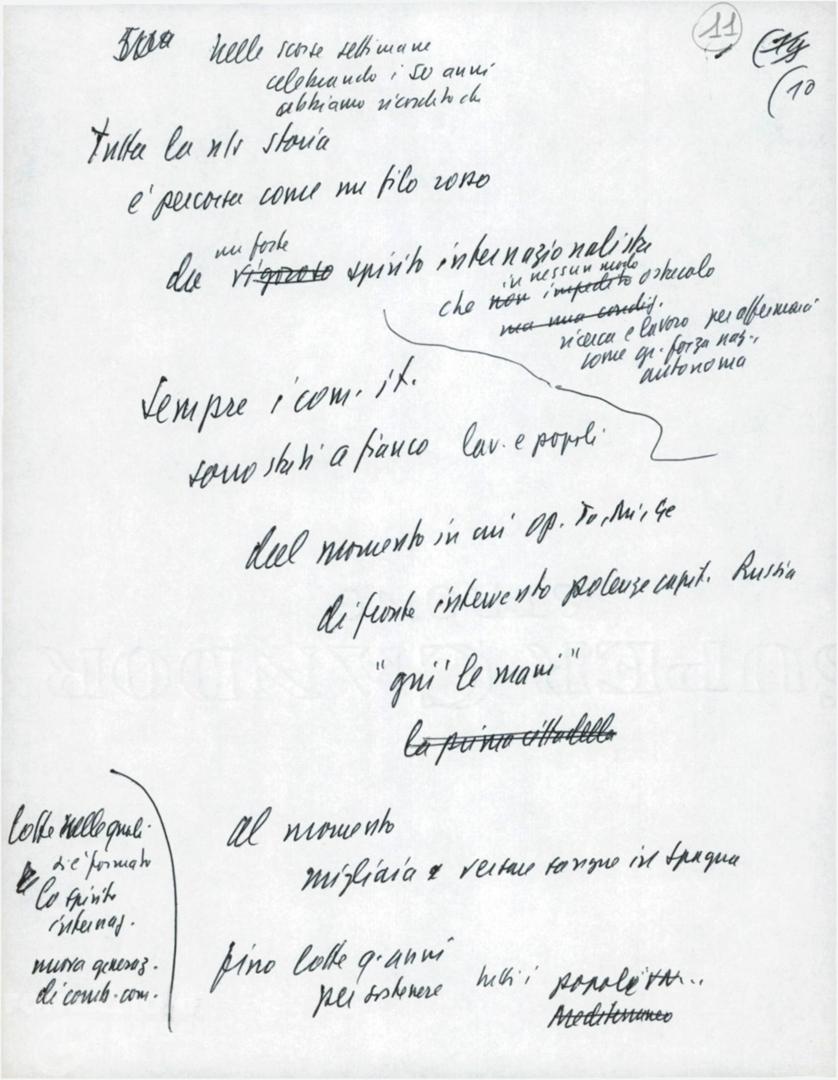 11
(14
(10
nelle scorse settimane
celebrando i 50 anni
abbiamo ricordato che
Tutta la ns storia
è percorsa come un filo rosso
un forte
da vigoroso spirito internazionalista
in nessun modo
che non impedito ostacolo
ma una condiz.
ricerca e lavoro per affermarci
come gr. forza naz.,
autonoma
Sempre i com. it.
sono stati a fianco lav. e popoli
dal momento in cui op. To, Mi, Ge
di fronte intervento potenze capit. Russia
"giù le mani"
la prima cittadella
al momento
migliaia versare sangue in Spagna
fino lotte q. anni
per sostenere tutti i popoli
Mediterraneo
lotte nelle quali
si è formato
lo spirito
internaz.
nuova generaz.
di comb. com.